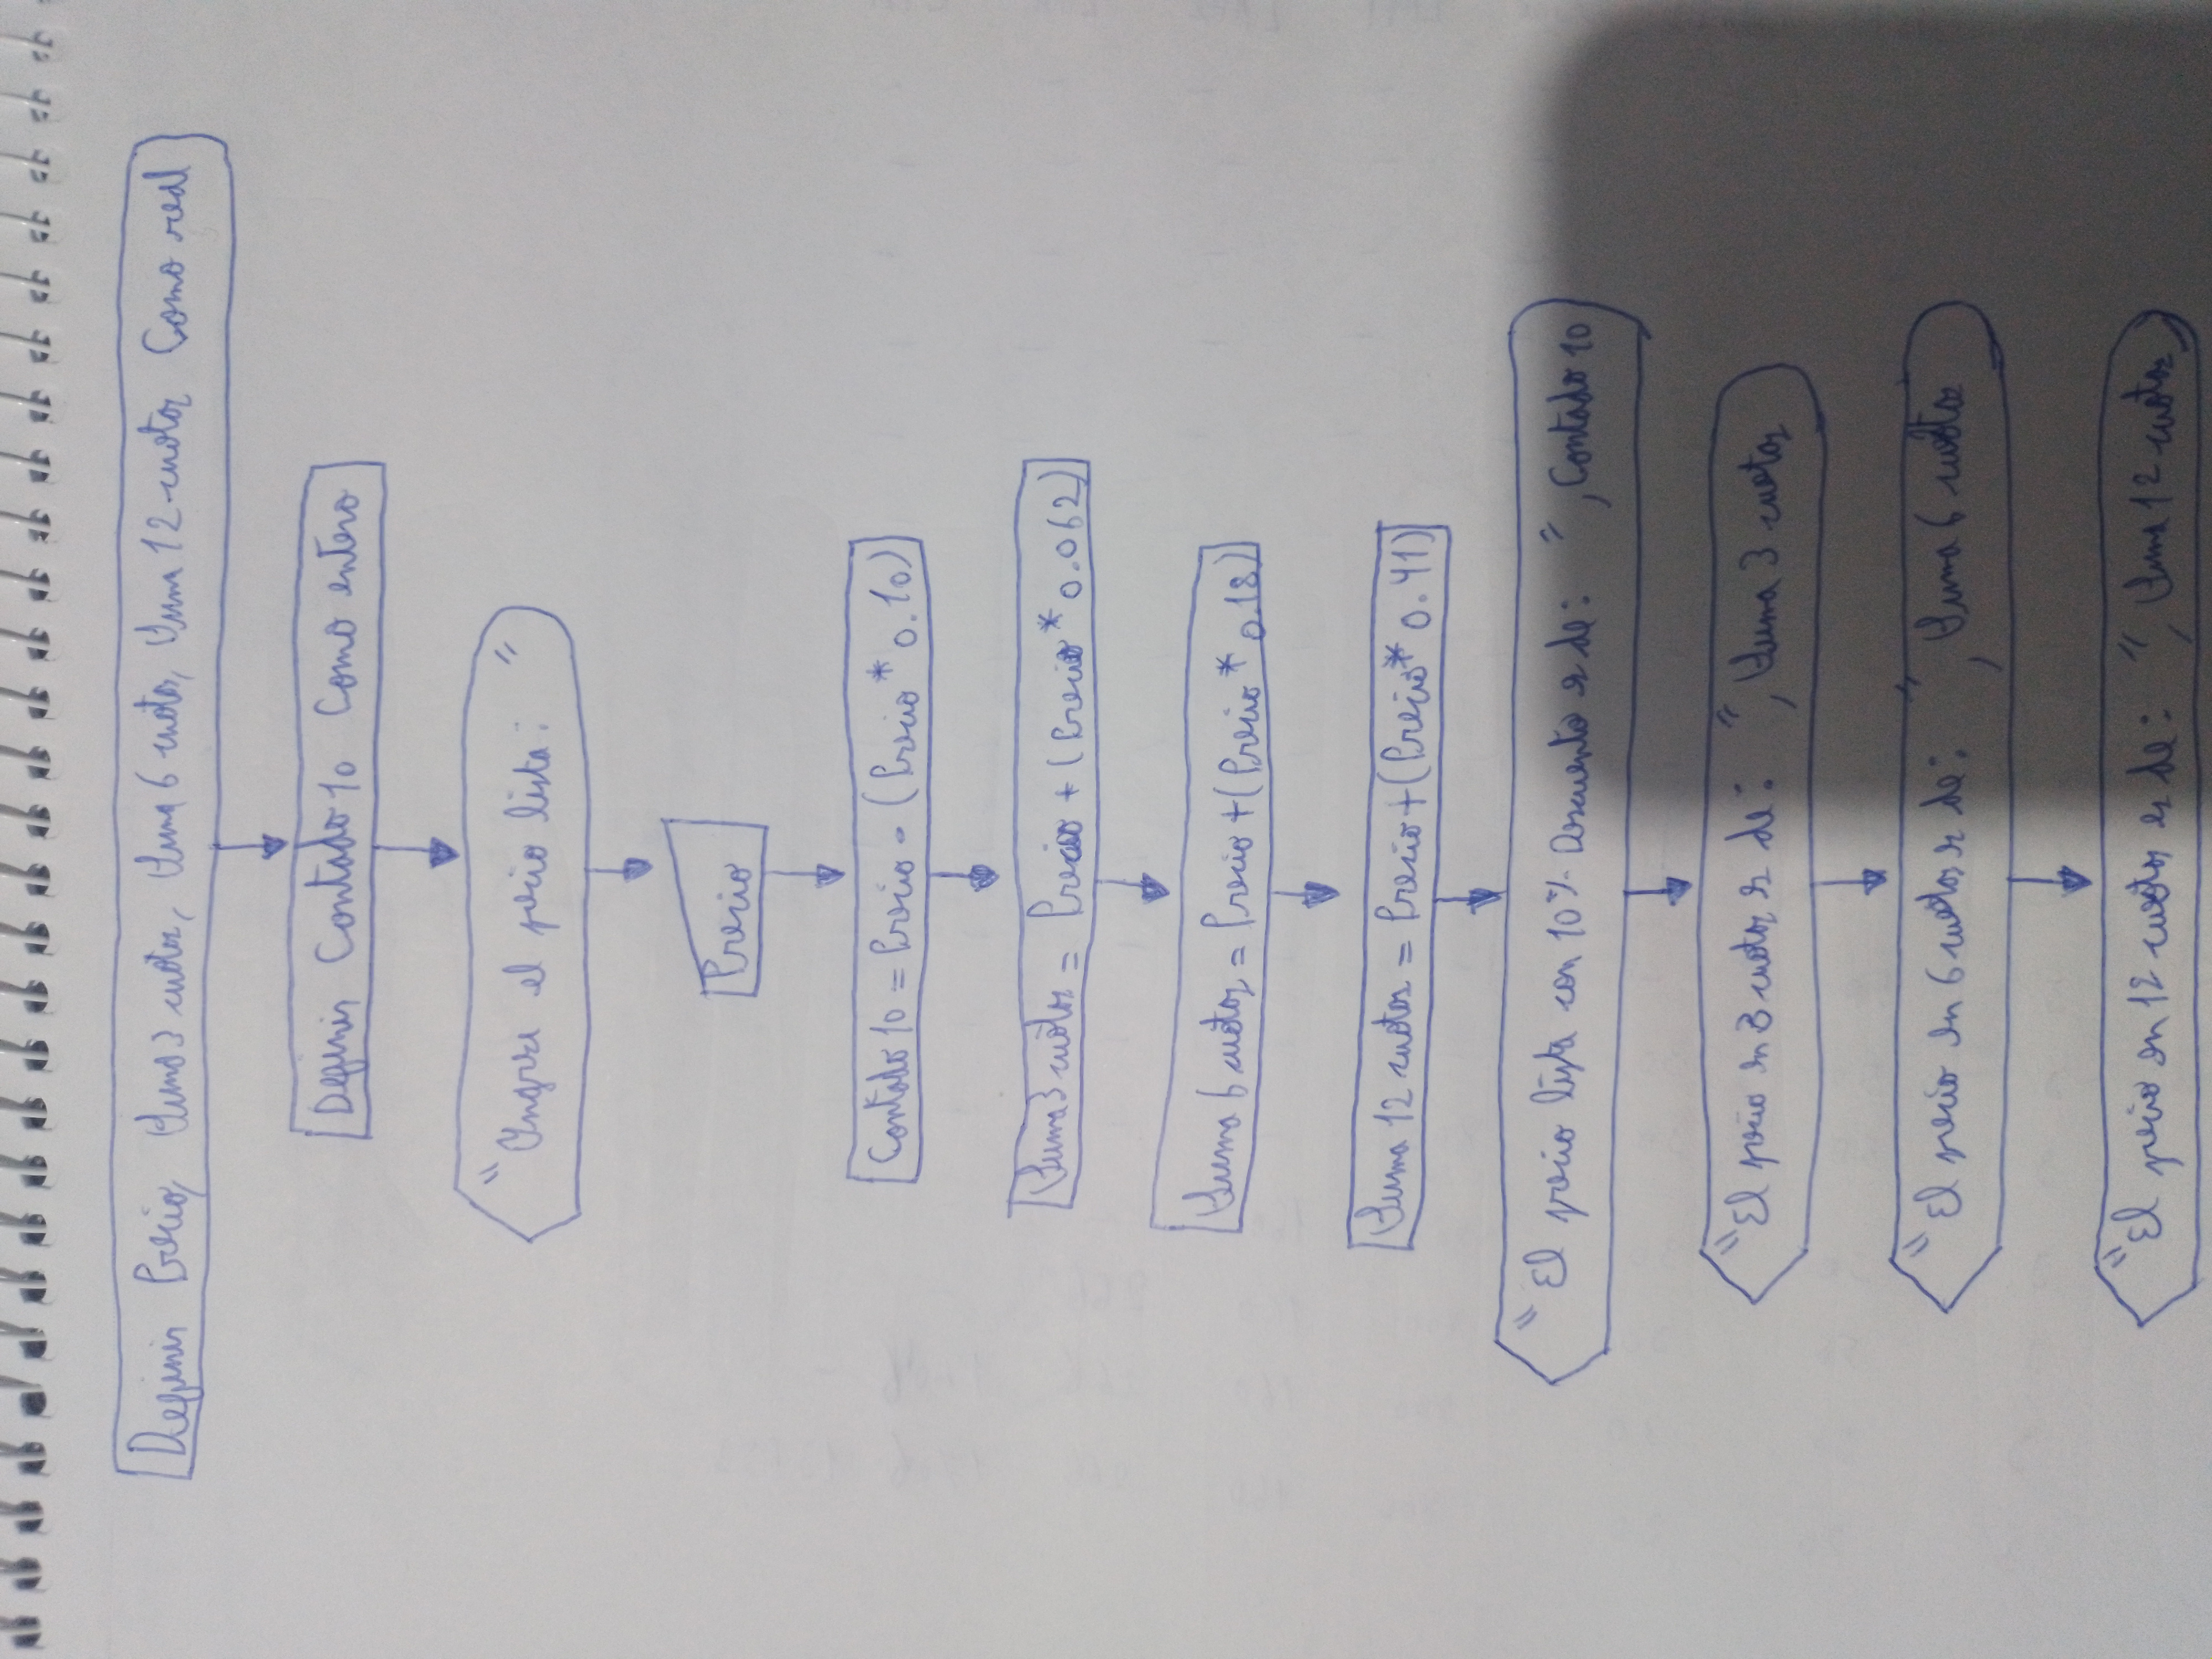 Definir Precio, Suma 3 cuotas, Suma 6 cuotas, Suma 12 cuotas Como real
Definir Contado 10 Como entero
"Ingrese el precio lista: "
Precio
Contado 10 = Precio - (Precio * 0.10)
Suma 3 cuotas = Precio + (Precio * 0.062)
Suma 6 cuotas = Precio + (Precio * 0.18)
Suma 12 cuotas = Precio + (Precio * 0.41)
"El precio lista con 10% Descuento es de: ", Contado 10
"El precio en 3 cuotas es de: ", Suma 3 cuotas
"El precio en 6 cuotas es de: ", Suma 6 cuotas
"El precio en 12 cuotas es de: ", Suma 12 cuotas